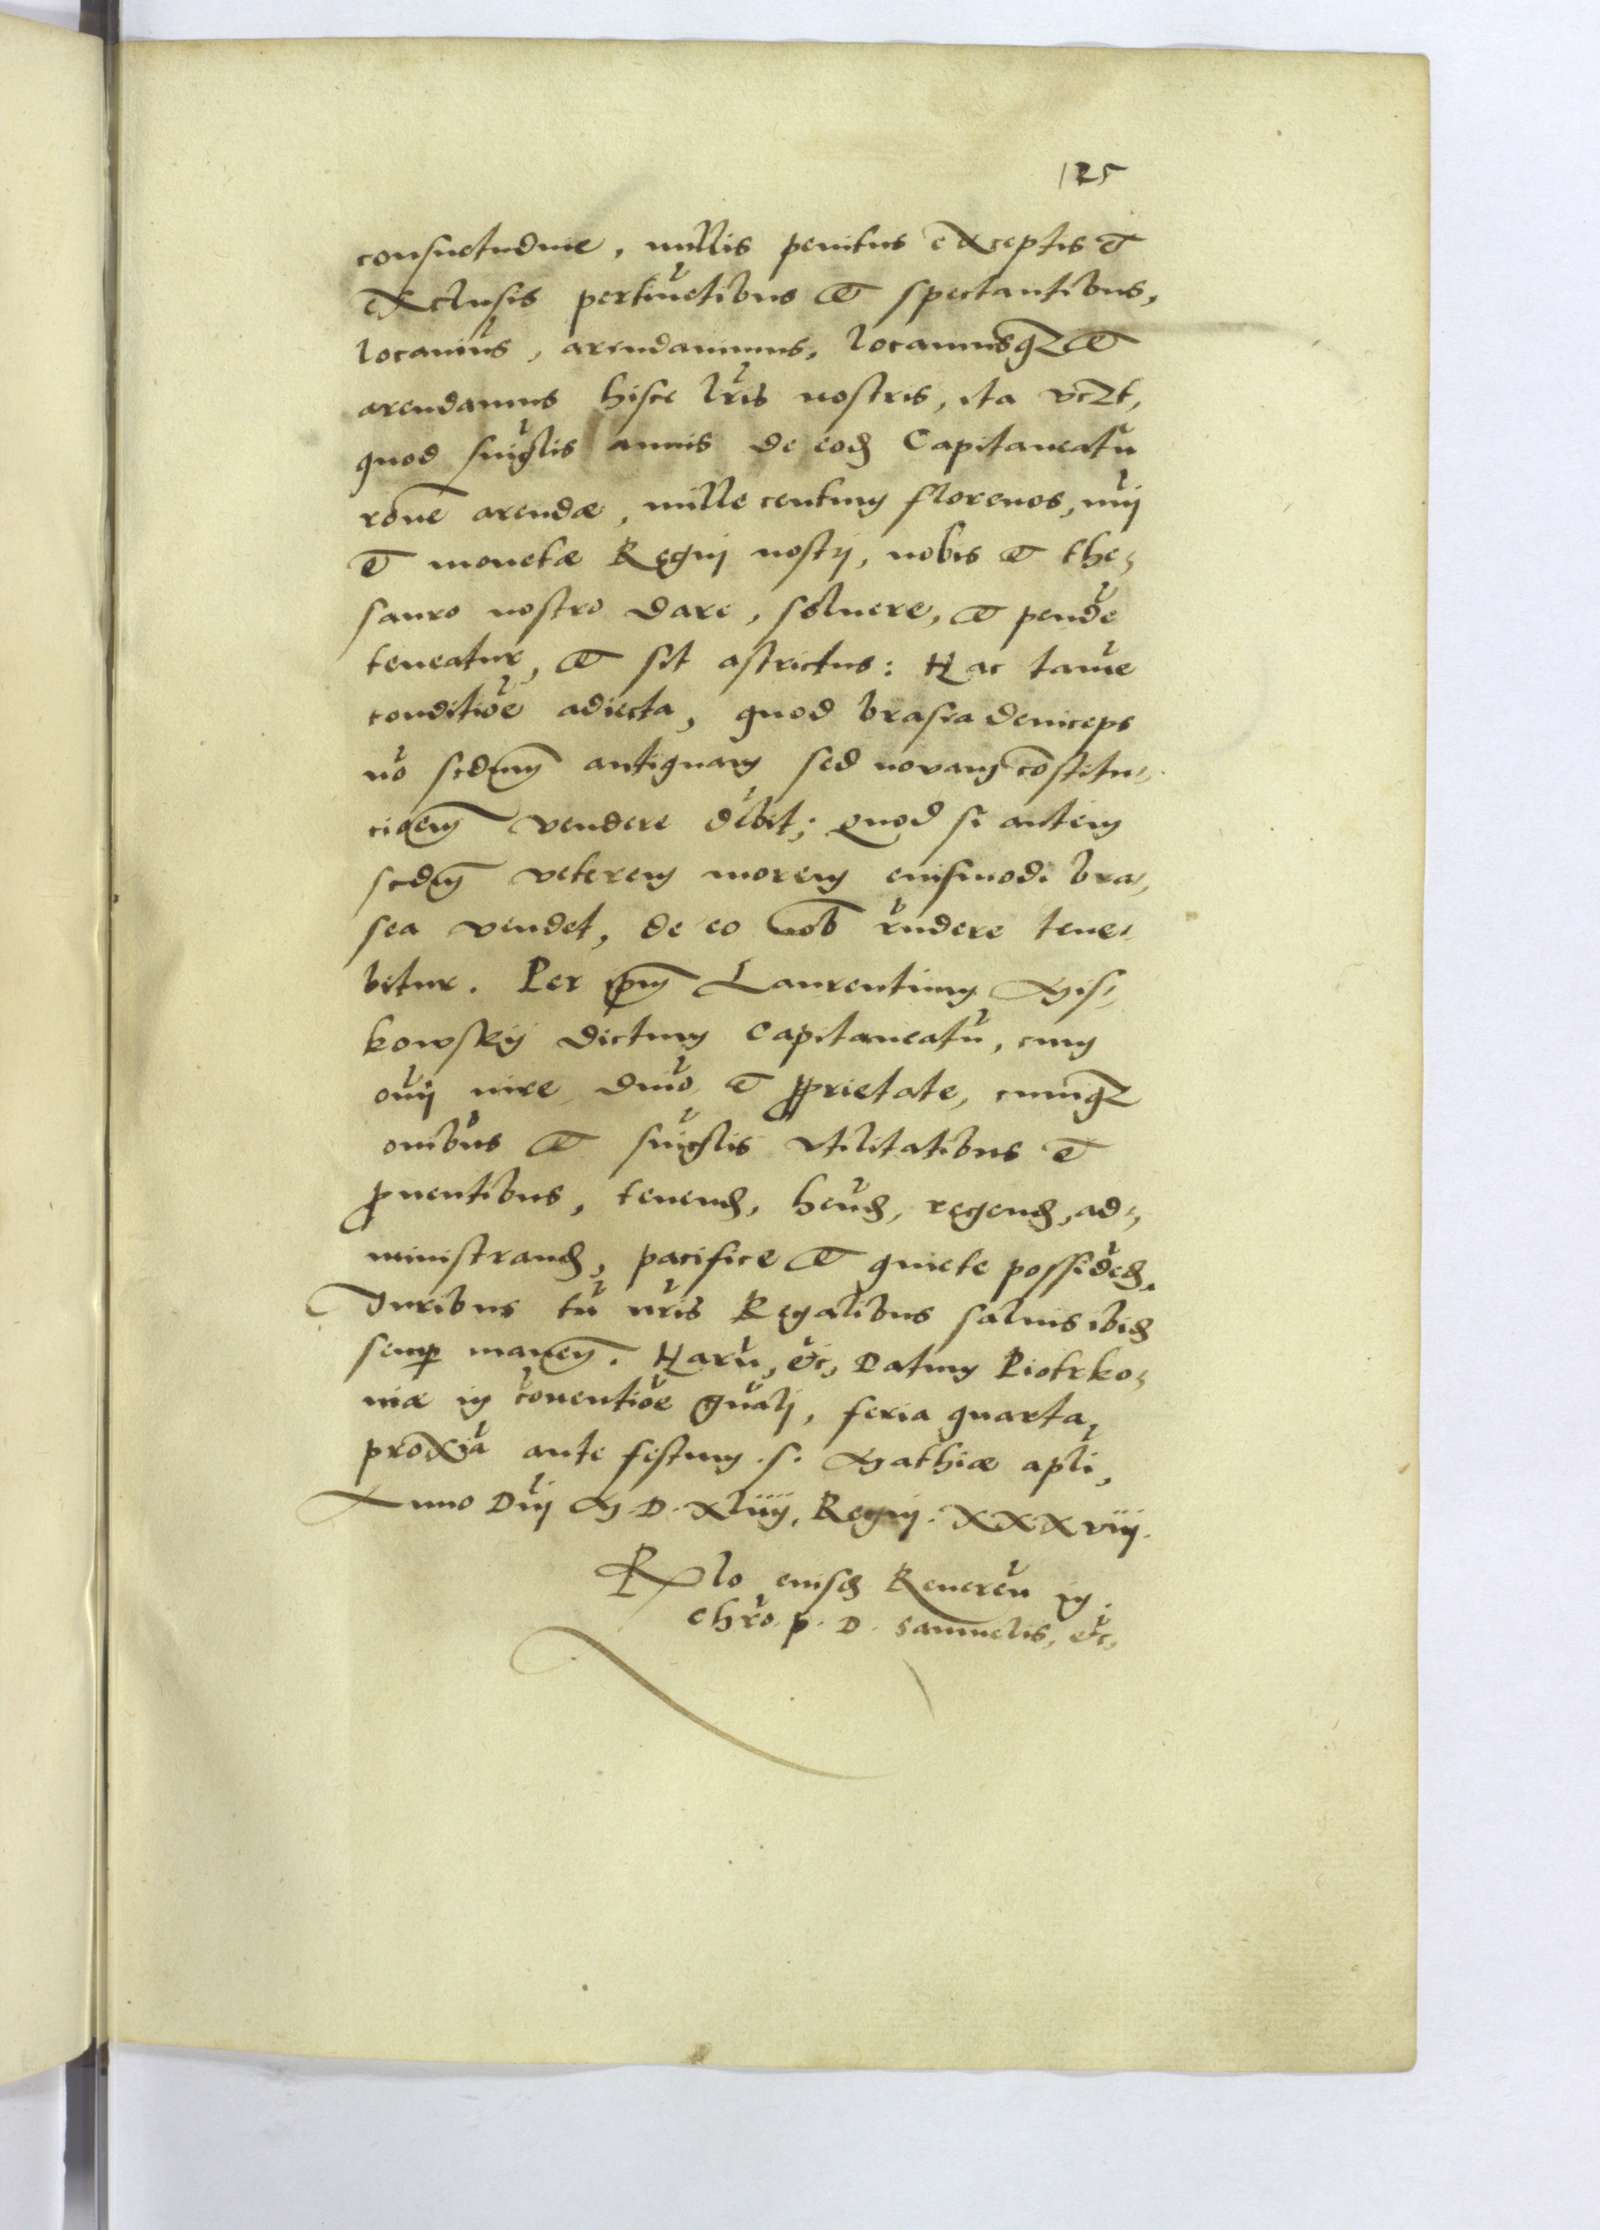 125
consuetudine, nullis penitus exceptis et
exclusis pertinẽtibus et spectantibus,
locavimus, arendavimus, locamusq₃ et
arendamus hisce lr̃is nostris, ita vcꝫt,
quod sing̃lis annis de eod̃ Capitaneatu
rõne arendæ, mille centum florenos, nũi
et monetæ Regni nostri, nobis et the,
sauro nostro dare, solvere, et pendẽ
teneatur, et sit astrictus: Hac tamẽ
conditiõe adiecta, quod brasea deinceps
nõ scdum antiquam sed novam cõstitu,
cioem vendere debet; Quod si autem
scdm veterem morem eiusmodi bra,
sea vendet, de eo nob r̃ndere tene,
bitur. Per ipm Laurentium Mis,
kowskij dictum Capitaneatũ, cum
oñi iure dñio et ꝓprietate, cumq₃
om̃ibus et sing̃lis utilitatibus et
ꝓventibus, tenend̃, hẽnd̃, regend̃, ad,
ministrand̃, pacifice et quiete possidẽd̃.
Iuribus tñ nr̃is Regalibus salvis ibid̃
semꝑ manẽn. Harũ, etc, Datum Piotrko,
niæ in cõventiõe gñali, feria quarta,
proxĩa ante festum .s. Mathiæ apli,
Anno Dñi M.D.Xliiij, Regni. XXXviij.
Rlo eiusd̃ Reverẽn in
chr̃o. p. D. Samuelis, etc,